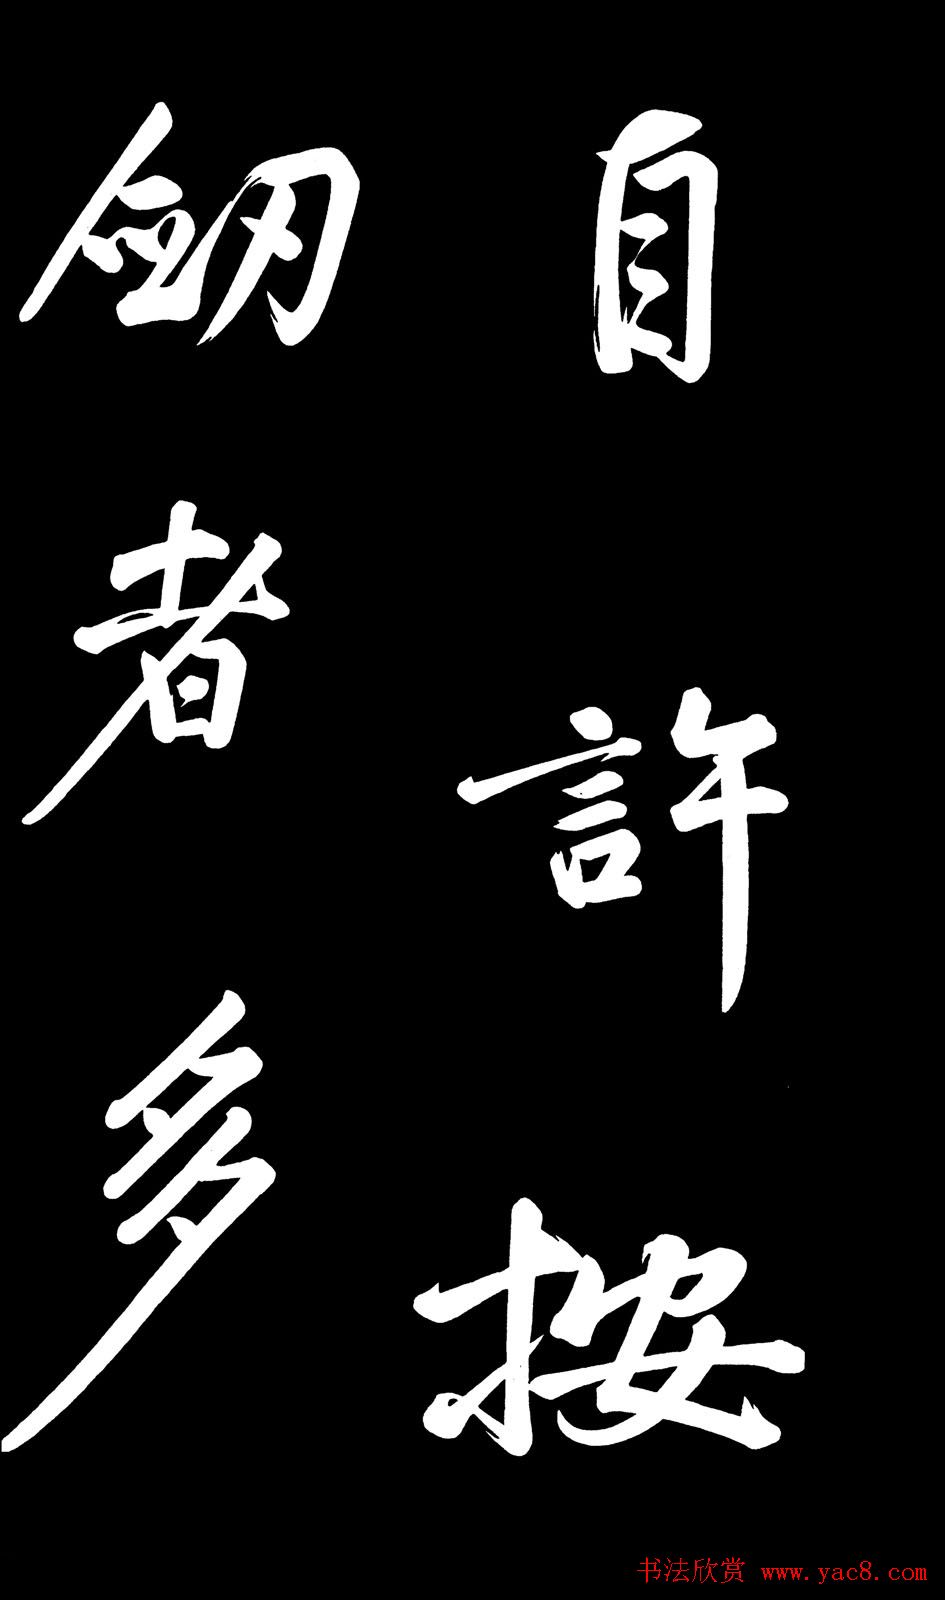 自許按
劒者多
书法欣赏 www.yac8.com